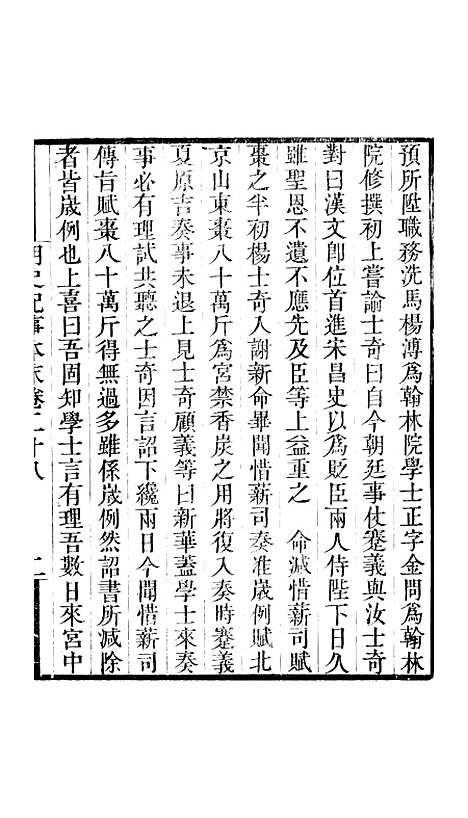 預所陞職務洗馬楊溥爲翰林院學士正字金問爲翰林
院修撰初上嘗諭士奇曰自今朝廷事仗蹇義與汝士奇
對曰漢文卽位首進宋昌史以爲貶臣兩人侍陛下日久
雖聖恩不遺不應先及臣等上益重之　命減惜薪司賦
棗之半初楊士奇入謝新命畢聞惜薪司奏准歲例賦北
京山東棗八十萬斤爲宮禁香炭之用將復入奏時蹇義
夏原吉奏事未退上見士奇顧義等曰新華蓋學士來奏
事必有理試共聽之士奇因言詔下纔兩日今聞惜薪司
傳旨賦棗八十萬斤得無過多雖係歲例然詔書所減除
者皆歲例也上喜曰吾固知學士言有理吾數日來宮中
明史紀事本末卷二十八　二